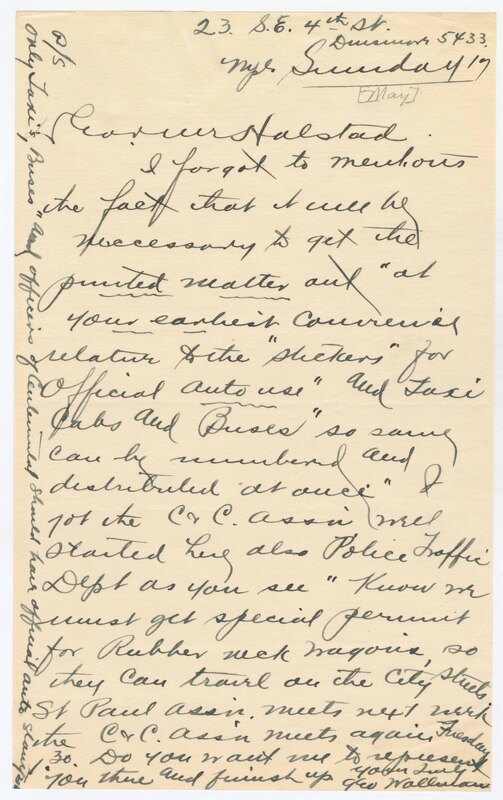 23. S.E. 4th St.
Dinsmore 5433.
Mpls Sunday 17
[May]
Governor Halstad.
I forgot to mention
the fact that it will be
neccessary to get the
printed matter out "at
your earliest Convenience
relative to the "stickers" for
Official auto use" and Taxi
Cabs and Buses" so same
can be numbered and
distributed at once" I
got the C & C. Assn well
started here also Police Traffic
Dept as you see" Know we
must get special permit
for Rubber neck wagons, so
they can travel on the City Streets
St Paul Assn. meets next week
the C & C. Assn meets again Tuesday
30. Do you want me to represent
you there and finish up
yours truly
Geo Wallman
P/S
Only Taxi's, Buses" and officers of Centennial should have official auto stamps